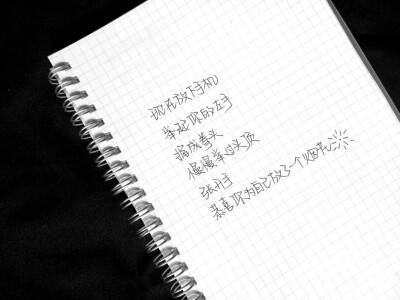 现在放下手机
举起你的左手
握成拳头
慢慢举过头顶
张开手
恭喜你为自己放了一个烟花